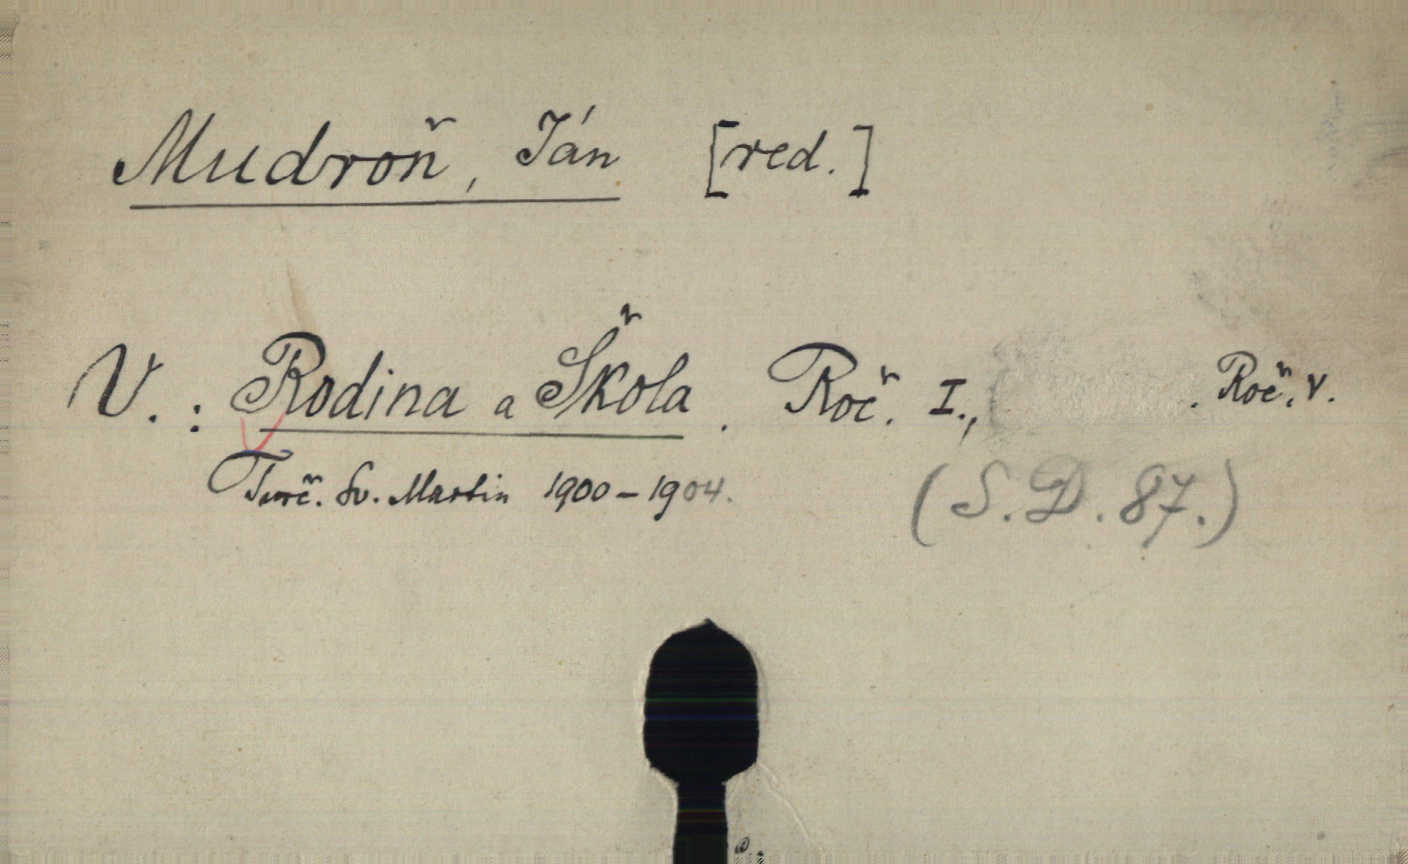 Mudroň, Ján [red.]
V. : Rodina a Škola. Roč. I., . Roč. V.
Turč. Sv. Martin 1900-1904.
(S. D. 87.)